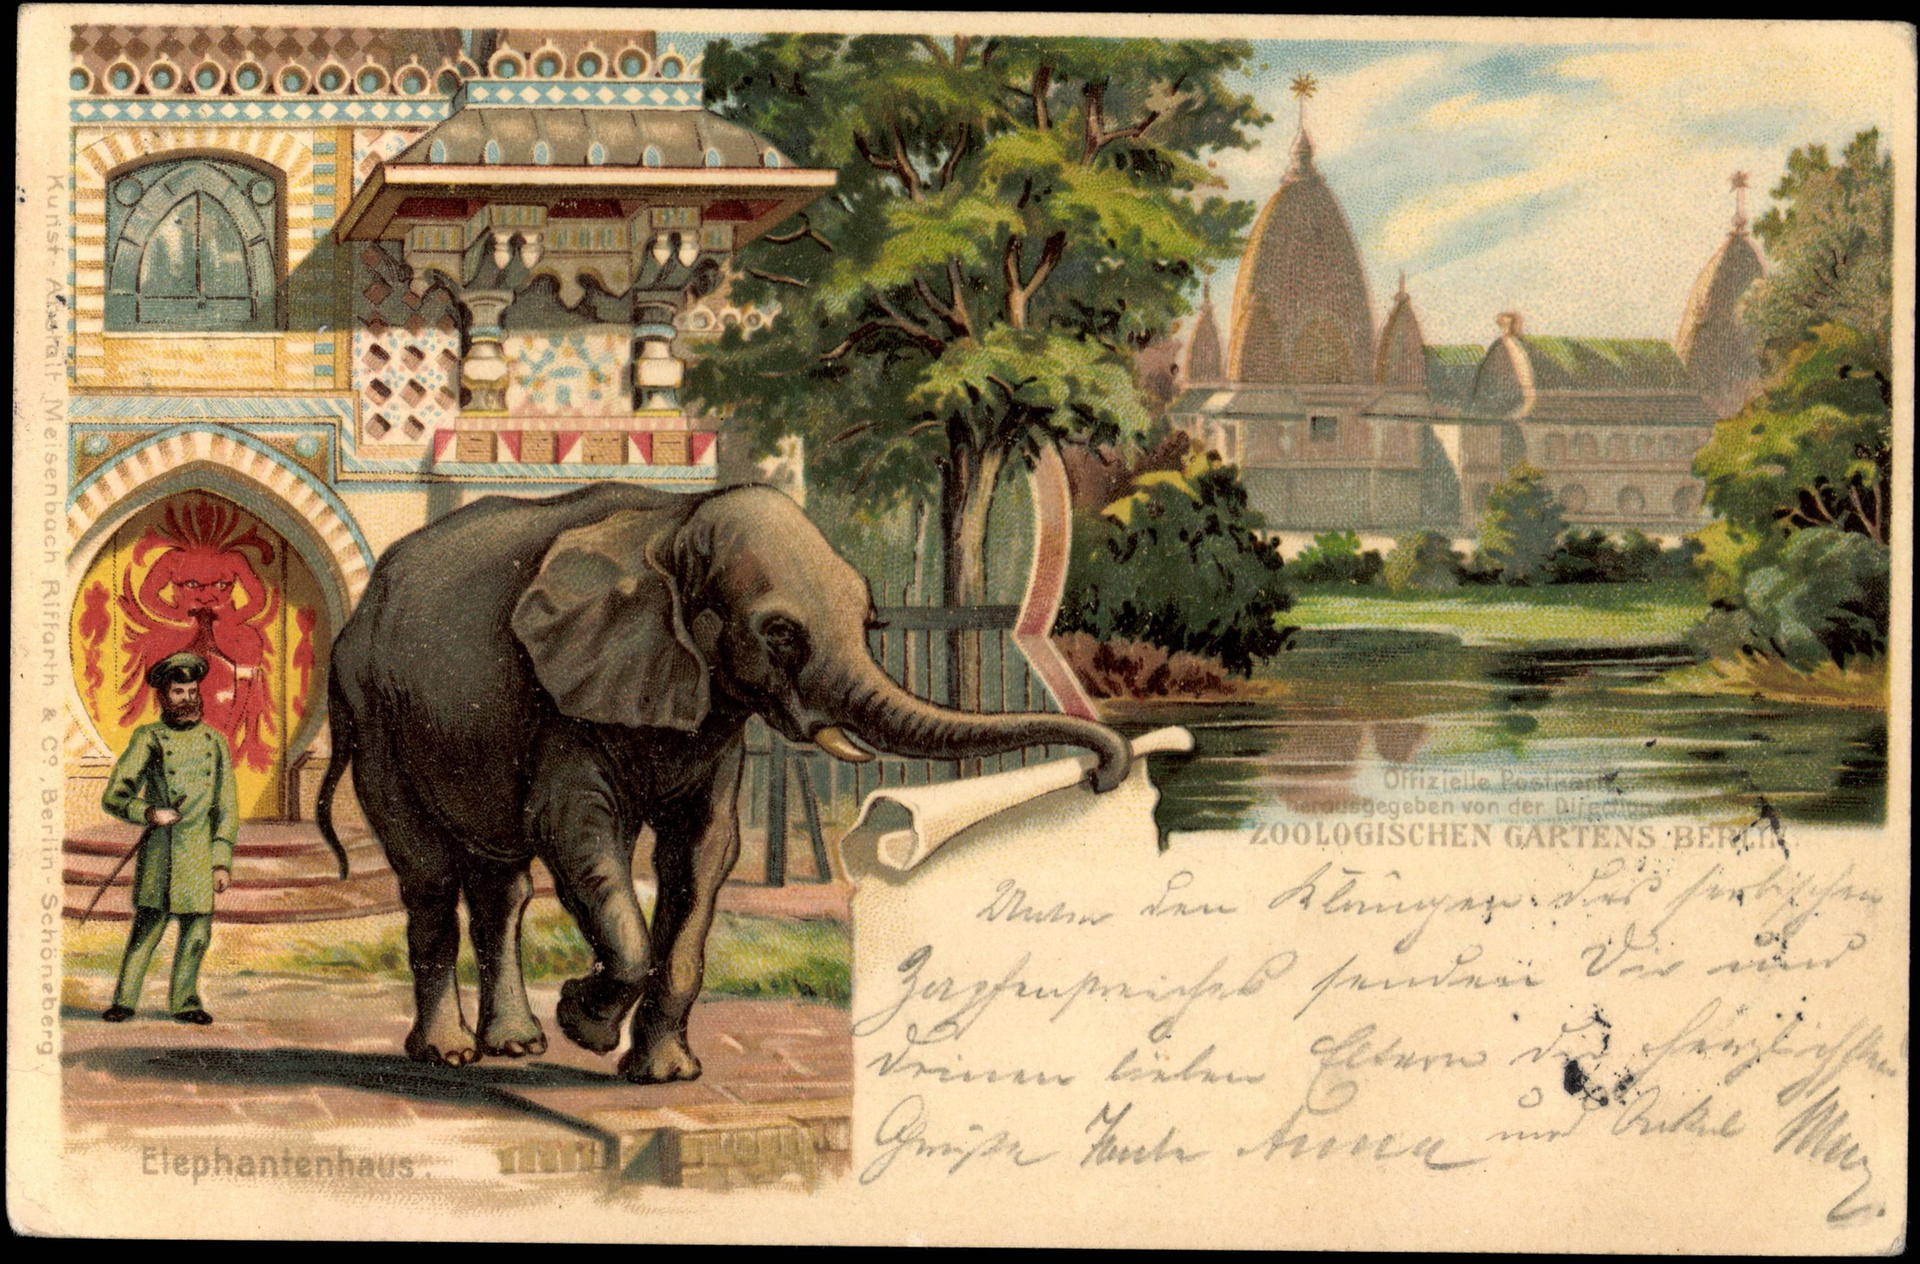 Kunst-Anstalt Meisenbach Riffarth & Co., Berlin-Schöneberg
Elephantenhaus.
Offizielle Postkarte
herausgegeben von der Direction des
ZOOLOGISCHEN GARTENS BERLIN.
Unter den Klängen des serbischen
Zapfenstreiches senden Dir und
Deinen lieben Eltern die herzlichsten
Grüße Tante Anna und Onkel Max.